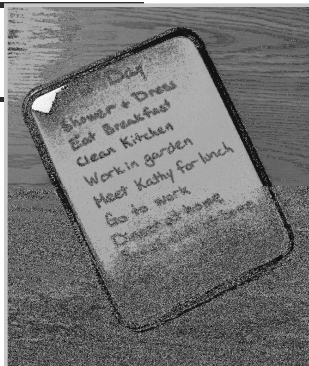 Day
Shower + Dress
Eat Breakfast
Clean Kitchen
Work in garden
Meet Kathy for lunch
Go to work
Dinner at home